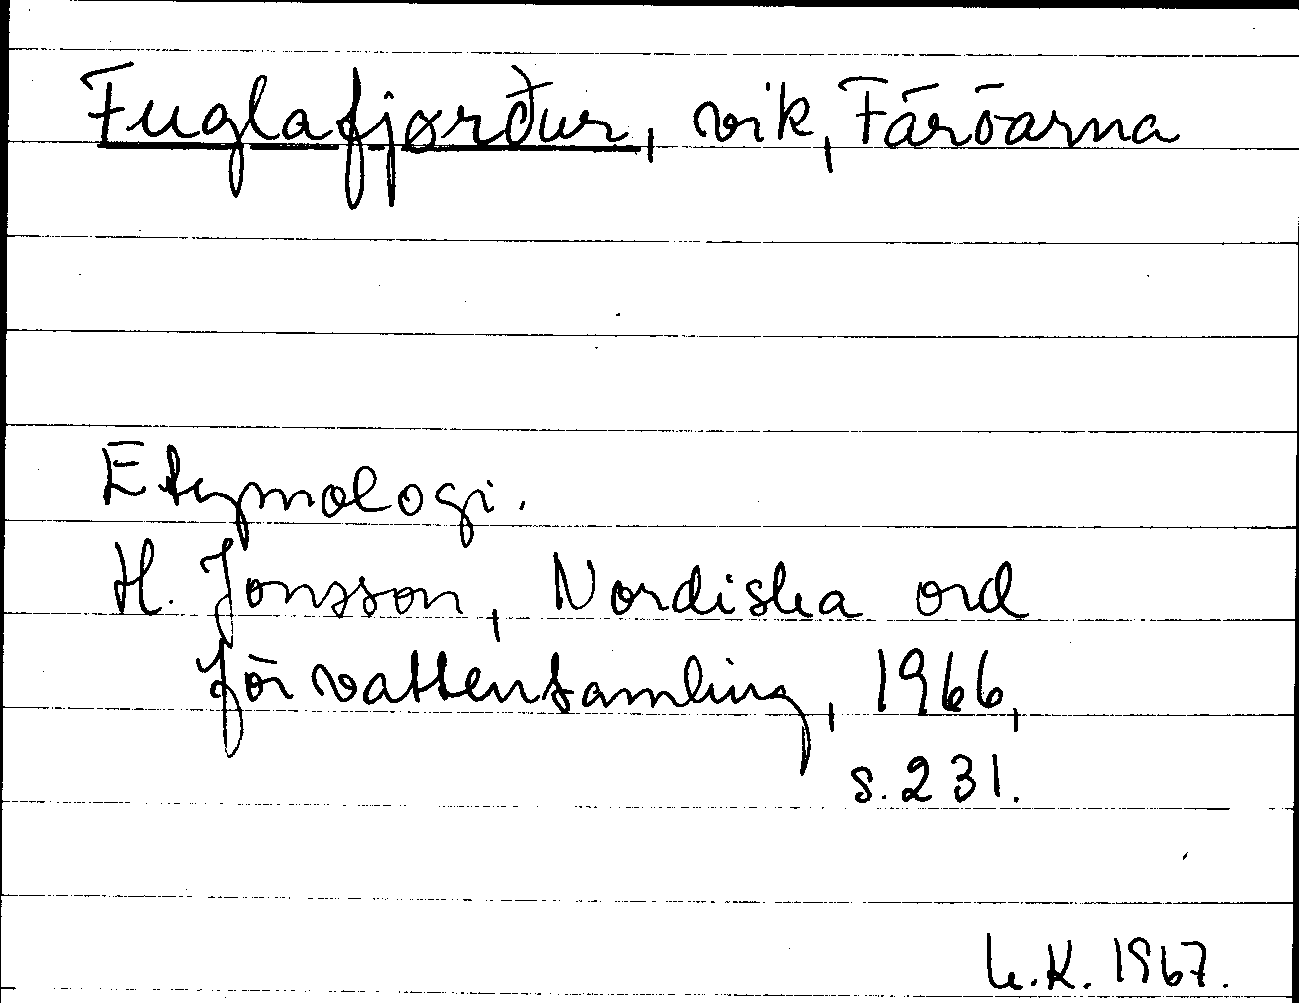 Fuglafjørður, vik, Färöarna
Etymologi.
H. Jonsson, Nordiska ord
för vattensamling, 1966,
s. 231.
K. 1967.